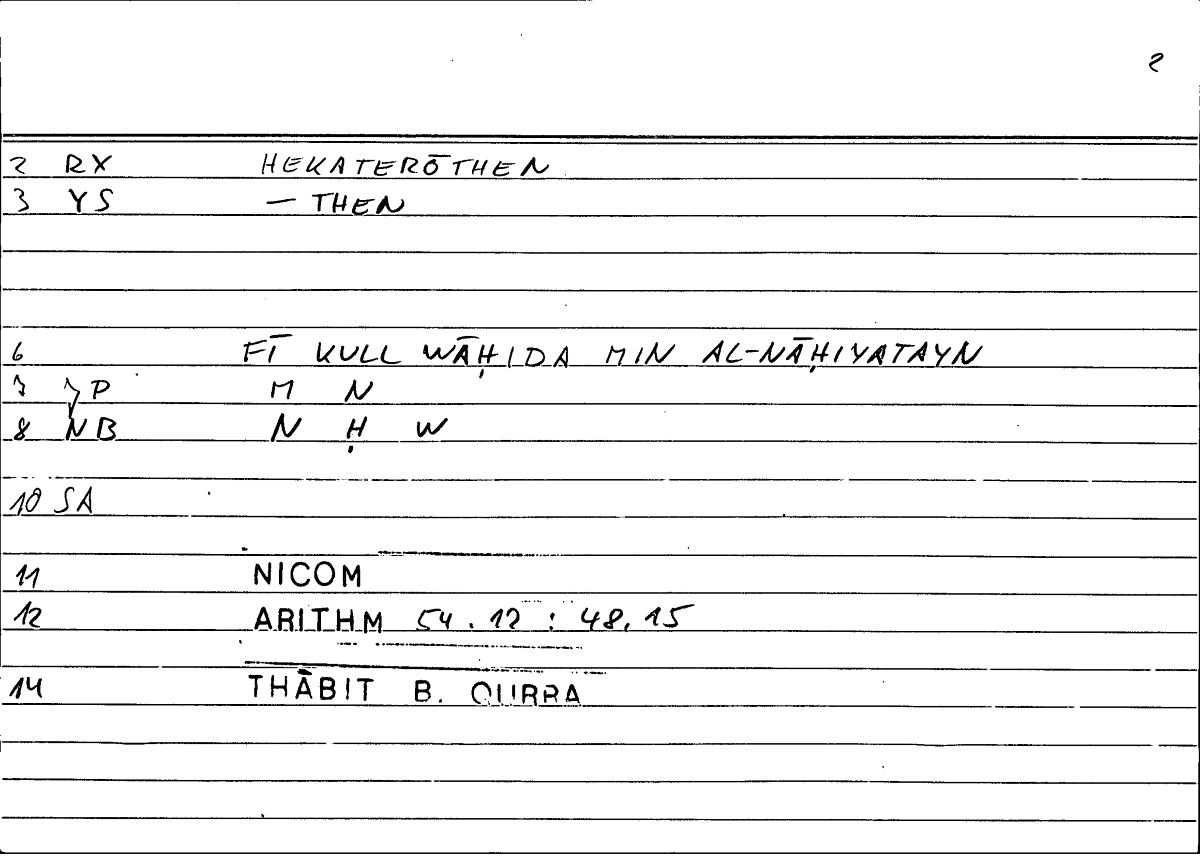 2
2 RX HEKATERŌTHEN
3 YS — THEN
6 FĪ KULL WĀḤIDA MIN AL-NĀḤIYATAYN
7 JP M N
8 NB N Ḥ W
10 SA
11 NICOM
12 ARITHM 54.12 : 48.15
14 THĀBIT B. QURRA